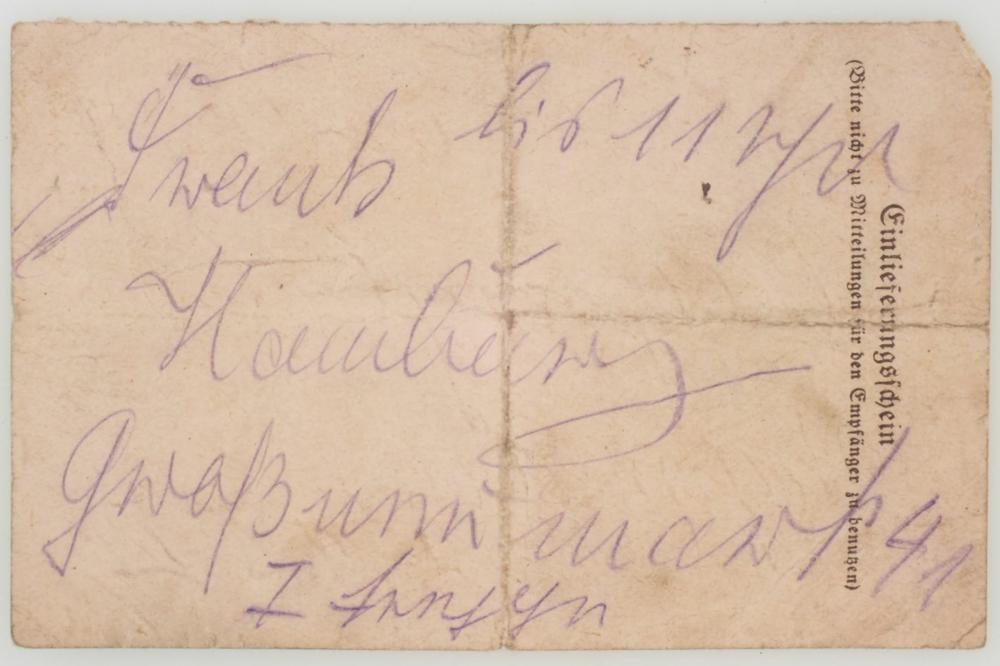 Frank bis 11 Uhr
Hamburg
Großneumarkt 41
I
Einlieferungsschein
(Bitte nicht zu Mitteilungen für den Empfänger zu benutzen)